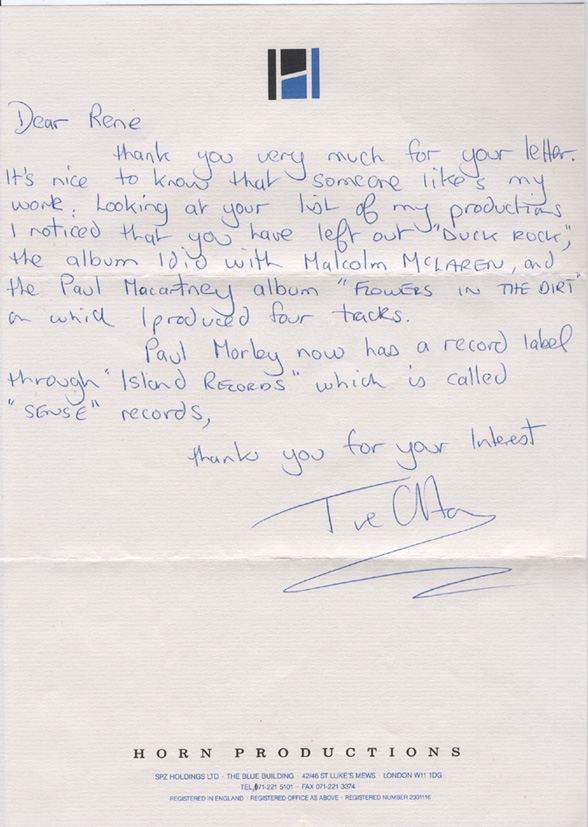 Dear Rene
thank you very much for your letter.
It's nice to know that someone like's my
work. Looking at your list of my productions
I noticed that you have left out "DUCK ROCK",
the album I did with Malcolm McLAREN, and
the Paul Macartney album "FLOWERS IN THE DIRT"
on which I produced four tracks.
Paul Morley now has a record label
through "Island RECORDS" which is called
"SENSE" records,
thank you for your Interest
HORN PRODUCTIONS
SPZ HOLDINGS LTD · THE BLUE BUILDING · 42/46 ST LUKE'S MEWS · LONDON W11 1DG
TEL 071-221 5101 · FAX 071-221 3374
REGISTERED IN ENGLAND · REGISTERED OFFICE AS ABOVE · REGISTERED NUMBER 2301116